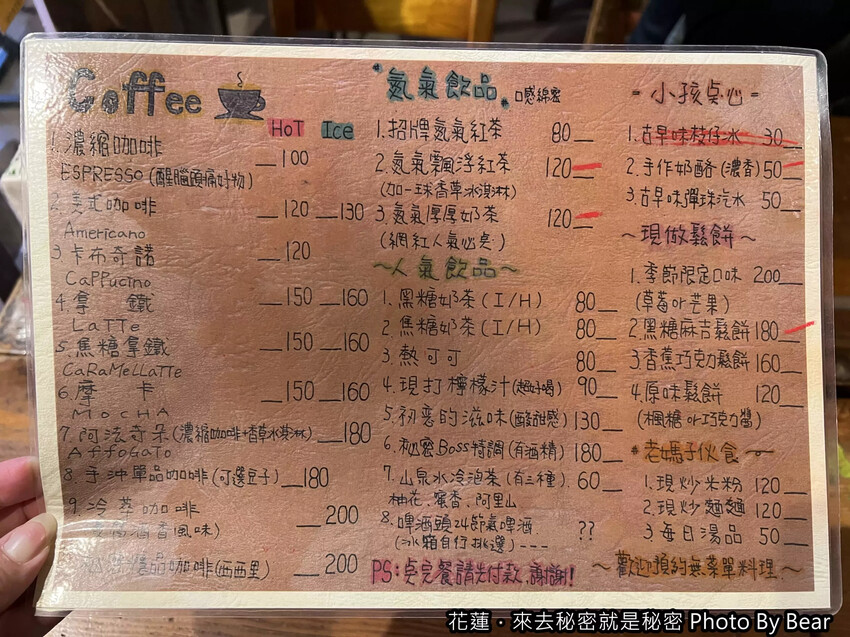 Coffee
HOT Ice
1. 濃縮咖啡 100
ESPRESSO (醒腦頭痛好物)
2. 美式咖啡 120 130
Americano
3 卡布奇諾 120
CaPPucino
4. 拿鐵 150 160
LaTTe
5. 焦糖拿鐵 150 160
CaRaMeLLaTTe
6. 摩卡 150 160
MOCHA
7. 阿法奇朵 (濃縮咖啡+香草冰淇淋) 180
AffoGaTo
8. 手沖單品咖啡 (可選豆子) 180
9. 冷萃咖啡 200
酒香風味)
咖啡 (西西里) 200
氮氣飲品 口感綿密
1. 招牌氮氣紅茶 80
2. 氮氣飄浮紅茶 120
(加一球香草冰淇淋)
3. 氮氣厚厚奶茶 120
(網紅人氣必点)
~人氣飲品~
1. 黑糖奶茶 (I/H) 80
2. 焦糖奶茶 (I/H) 80
3. 熱可可 80
4. 現打檸檬汁 (超好喝) 90
5. 初戀的滋味 (酸甜感) 130
6. 秘密Boss特調 (有酒精) 180
7. 山泉水冷泡茶 (有三種) 60
柚花、蜜香、阿里山
8. 啤酒頭24節氣啤酒 ??
(冰箱自行挑選) ---
PS: 点完餐請先付款,謝謝!
- 小孩点心 -
1. 古早味枝仔冰 30
2. 手作奶酪 (濃香) 50
3. 古早味彈珠汽水 50
~現做鬆餅~
1. 季節限定口味 200
(草莓 or 芒果)
2. 黑糖麻吉鬆餅 180
3. 香蕉巧克力鬆餅 160
4. 原味鬆餅 120
(楓糖 or 巧克力醬)
* 老媽子伙食~
1. 現炒米粉 120
2. 現炒麵麵 120
3 每日湯品 50
~歡迎預約無菜單料理.~
花蓮‧來去秘密就是秘密 Photo By Bear